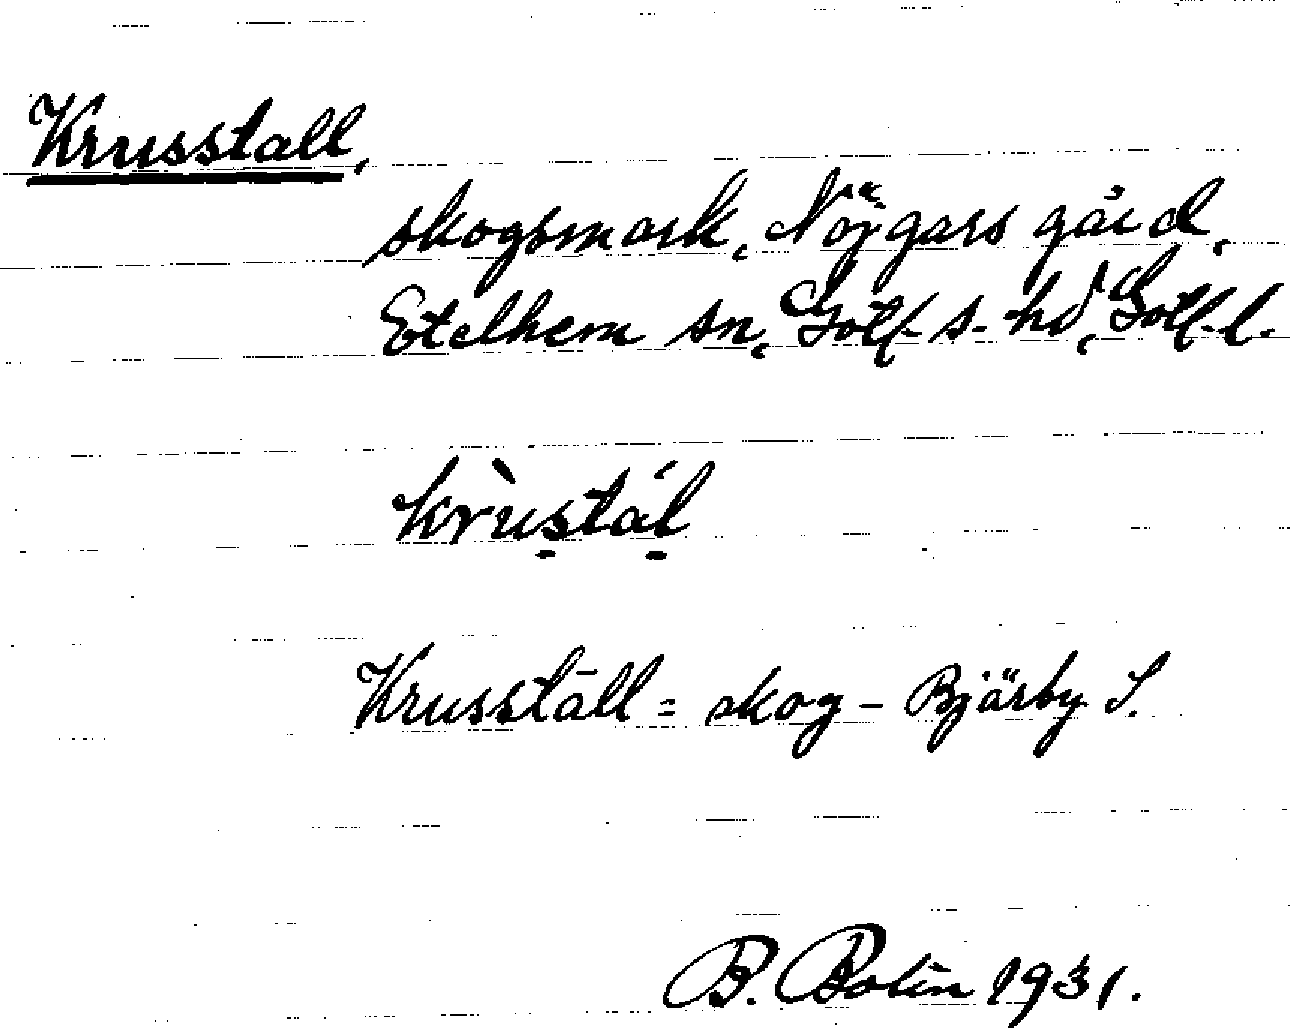 Krusstall,
skogsmark, Nöjgars gård,
Etelhem sn, Gotl. s. hd, Gotl. l.
krùstál
Krusställ = skog - Bjärby S.
B. Bolin 1931.